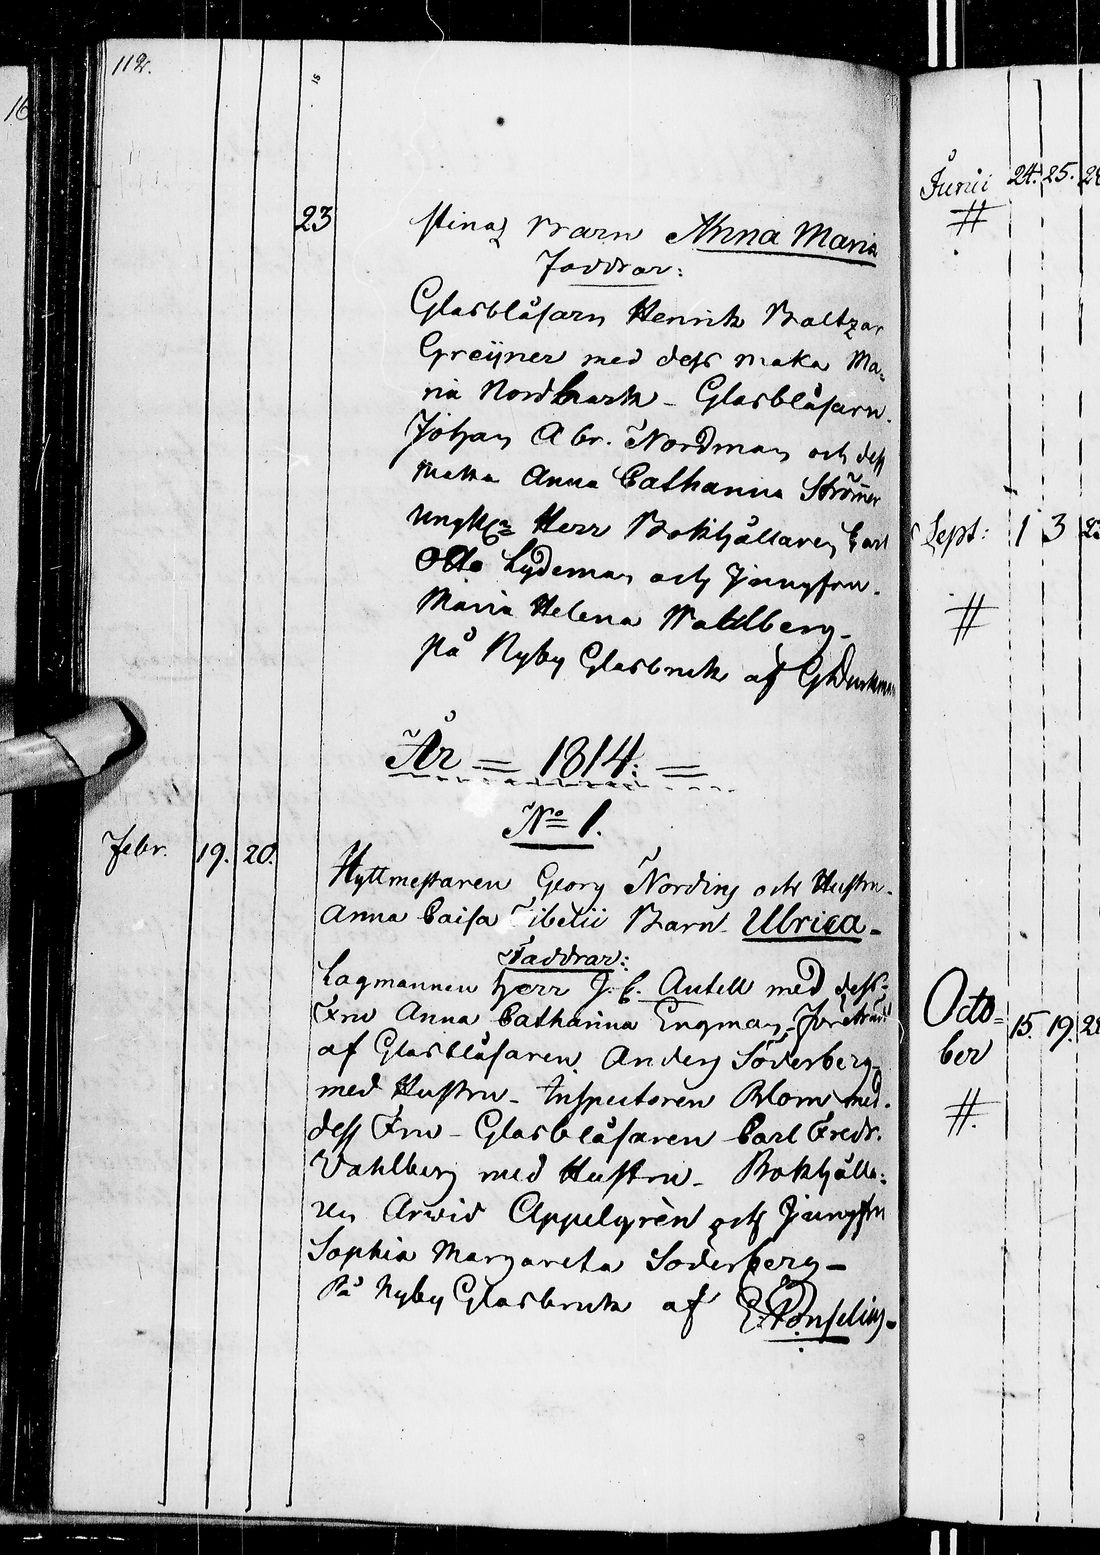 112.
16
23
stinas Barn Anna Maria
Faddrar:
Glasblåsarn Henrik Baltzar
Greijner med dess maka Ma-
ria Nordbark - Glasblåsarn
Johan Abr. Nordman och dess
maka Anna Catharina Strömer
Herr Bokhållaren Carl
Otto Lydeman och Jungfru
Maria Helena Wahlberg -
på Nyby Glasbruk af
År = 1814. =
No 1.
Febr. 19. 20.
Hyttmestaren Georg Nording och Hustru
Anna Caisa Tibelii Barn Ulrica -
Faddrar:
Lagmannen Herr J. C. Antell med dess
Fru Anna Catharina Engman, företrädd
af Glasblåsaren Anders Söderberg
med Hustru - Inspectoren Blom med
dess Fru - Glasblåsaren Carl Fredr.
Vahlberg med Hustru - Bokhålla-
ren Arvid Appelgrèn och Jungfru
Sophia Margareta Söderberg -
På Nyby Glasbruk af
Junii 24. 25.
#
Sept: 1 3
#
Octo-
ber 15. 19.
#.